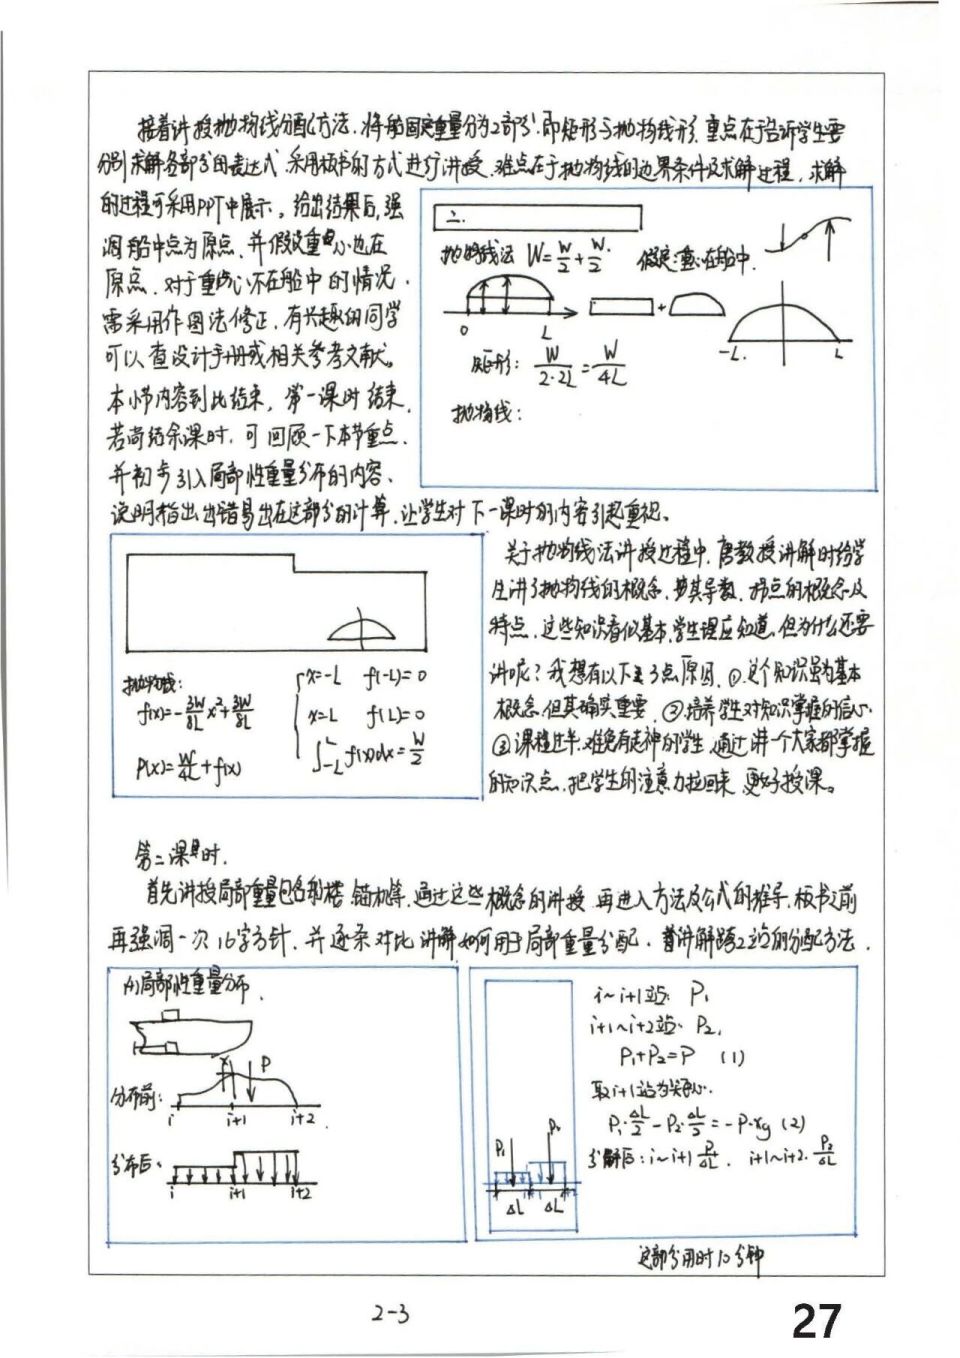 接着讲授抛物线分配方法.将船固定重量分为2部分.即矩形与抛物线形.重点在于告诉学生要
分别求解各部分的表达式.采用板书的方式进行讲授.难点在于抛物线的边界条件及求解过程.求解
的过程可采用PPT中展示。给出结果后,强
调船中点为原点.并假设重心也在
原点.对于重心不在船中的情况.
需采用作图法修正.有兴趣的同学
可以查设计手册或相关参考文献。
本小节内容到此结束,第一课时结束.
若尚结余课时.可回顾一下本节重点.
并初步引入局部性重量分布的内容、
说明指出出错易出在这部分的计算.让学生对下一课时的内容引起重视。
二.
抛物线法 W=W/2+W/2. 假定重心在船中.
0 L
-L. L
矩形: W/2·2L=W/4L
抛物线:
关于抛物线法讲授过程中.唐教授讲解时给学
生讲了抛物线的概念.其导数.拐点的概念及
特点.这些知识看似基本.学生理应知道.但为什么还要
讲呢?我想有以下3点原因.①.这个知识虽为基本
概念.但其确实重要.②.培养学生对知识掌握的信心.
③课程过半.难免有走神的学生.通过讲一个大家都掌握
的知识点.把学生的注意力拉回来.更好授课。
抛物线:
f(x)=-3W/8L x²+3W/8L
P(x)=W/4L+f(x)
x=-L f(-L)=0
x=L f(L)=0
∫-L L f(x)dx=W/2
第二课时.
首先讲授局部重量包含 锚机等.通过这些概念的讲授.再进入方法及公式的推导.板书之前
再强调一次16字方针.并逐条对比讲解如何用于局部重量分配.首讲解跨2站的分配方法.
局部性重量分布.
x P
分布前:
i i+1 i+2.
分布后:
i i+1 i+2
P₁ P₂
ΔL ΔL
i~i+1站: P₁
i+1~i+2站: P₂,
P₁+P₂=P (1)
取i+1站为矩心.
P₁·ΔL/2-P₂·ΔL/2=-P·xg (2)
分解后:i~i+1 P₁/ΔL. i+1~i+2. P₂/ΔL
这部分用时10分钟
2-3
27